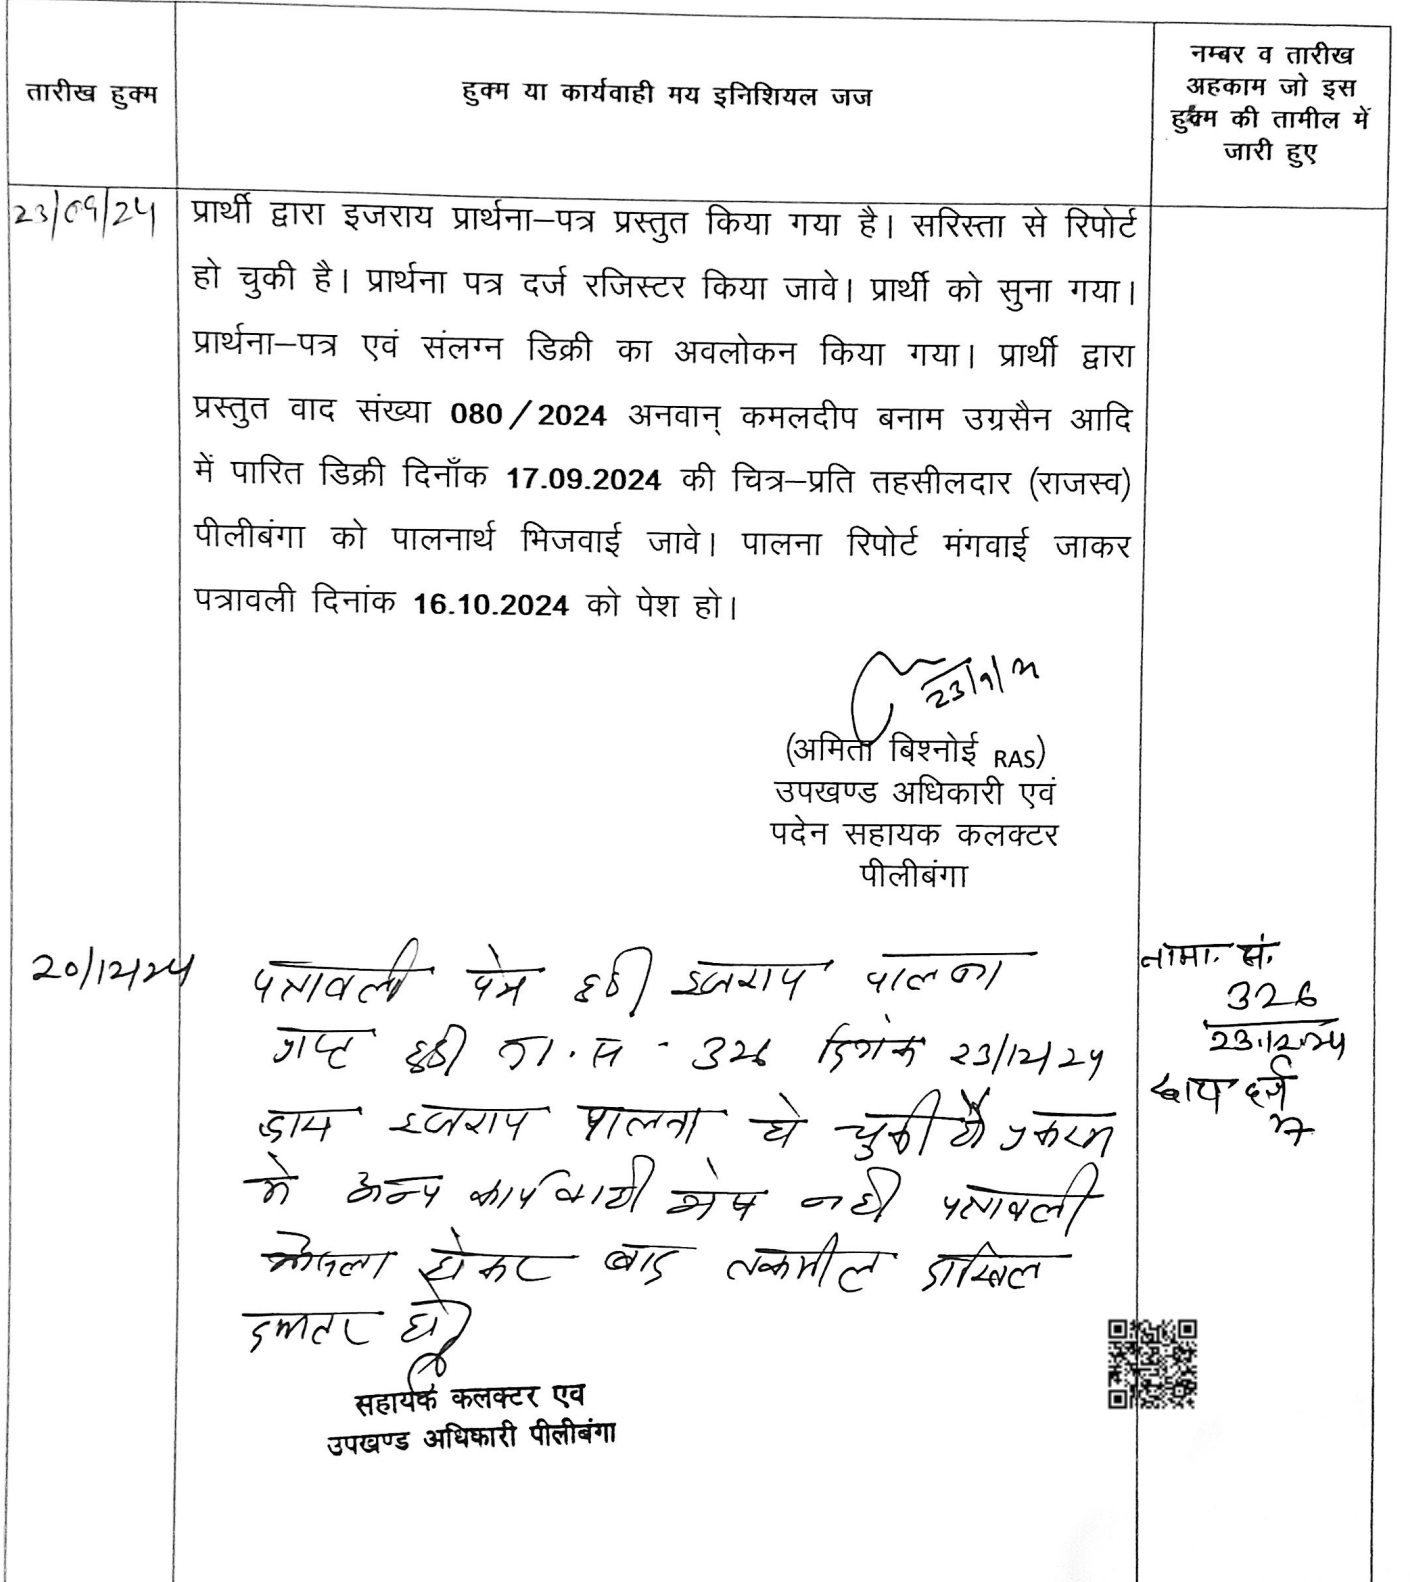 तारीख हुक्म
हुक्म या कार्यवाही मय इनिशियल जज
नम्बर व तारीख
अहकाम जो इस
हुक्म की तामील में
जारी हुए
23/09/24
प्रार्थी द्वारा इजराय प्रार्थना–पत्र प्रस्तुत किया गया है। सरिस्ता से रिपोर्ट
हो चुकी है। प्रार्थना पत्र दर्ज रजिस्टर किया जावे। प्रार्थी को सुना गया।
प्रार्थना–पत्र एवं संलग्न डिक्री का अवलोकन किया गया। प्रार्थी द्वारा
प्रस्तुत वाद संख्या 080/2024 अनवान् कमलदीप बनाम उग्रसैन आदि
में पारित डिक्री दिनाँक 17.09.2024 की चित्र–प्रति तहसीलदार (राजस्व)
पीलीबंगा को पालनार्थ भिजवाई जावे। पालना रिपोर्ट मंगवाई जाकर
पत्रावली दिनांक 16.10.2024 को पेश हो।
23/9/24
(अमिता बिश्नोई RAS)
उपखण्ड अधिकारी एवं
पदेन सहायक कलक्टर
पीलीबंगा
20/12/24
पत्रावली पेश हुई इजराय पालना
प्राप्त हुई ना. स. 326 दिनांक 23/12/24
इजराय पालना हो चुकी है प्रकरण
मे अन्य कार्यवाही शेष नही पत्रावली
फैसला होकर बाद तकमील दाखिल
दफ्तर हो
नामा. सं.
326
23.12.24
दर्ज
सहायक कलक्टर एव
उपखण्ड अधिकारी पीलीबंगा